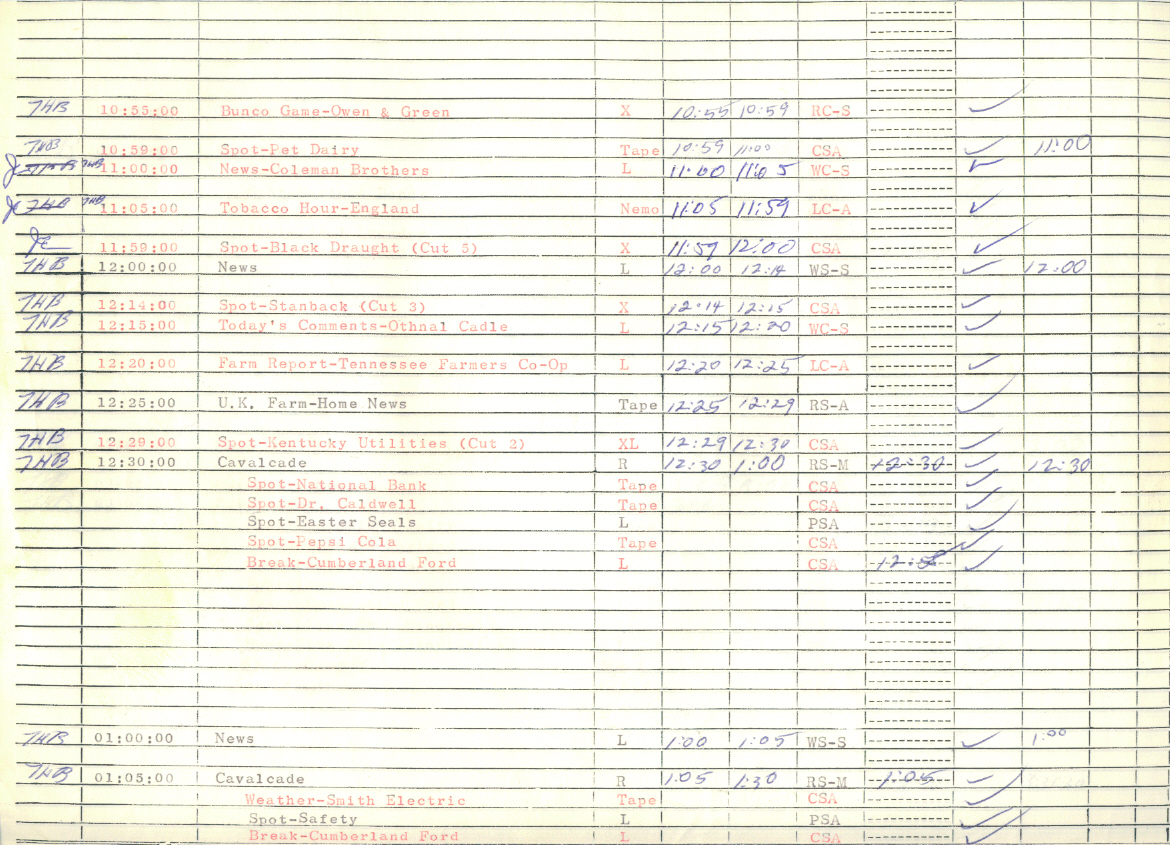 THB 10:55:00 Bunco Game-Owen & Green X 10:55 10:59 RC-S
THB 10:59:00 Spot-Pet Dairy Tape 10:59 11:00 CSA 11:00
THB THB 11:00:00 News-Coleman Brothers L 11:00 11:05 WC-S
THB THB 11:05:00 Tobacco Hour-England Nemo 11:05 11:59 LC-A
11:59:00 Spot-Black Draught (Cut 5) X 11:59 12:00 CSA
THB 12:00:00 News L 12:00 12:14 WS-S 12:00
THB 12:14:00 Spot-Stanback (Cut 3) X 12:14 12:15 CSA
THB 12:15:00 Today's Comments-Othnal Cadle L 12:15 12:20 WC-S
THB 12:20:00 Farm Report-Tennessee Farmers Co-Op L 12:20 12:25 LC-A
THB 12:25:00 U.K. Farm-Home News Tape 12:25 12:29 RS-A
THB 12:29:00 Spot-Kentucky Utilities (Cut 2) XL 12:29 12:30 CSA
THB 12:30:00 Cavalcade R 12:30 1:00 RS-M 12:30 12:30
Spot-National Bank Tape CSA
Spot-Dr. Caldwell Tape CSA
Spot-Easter Seals L PSA
Spot-Pepsi Cola Tape CSA
Break-Cumberland Ford L CSA
THB 01:00:00 News L 1:00 1:05 WS-S 1:00
THB 01:05:00 Cavalcade R 1:05 1:30 RS-M 1:05
Weather-Smith Electric Tape CSA
Spot-Safety L PSA
Break-Cumberland Ford L CSA